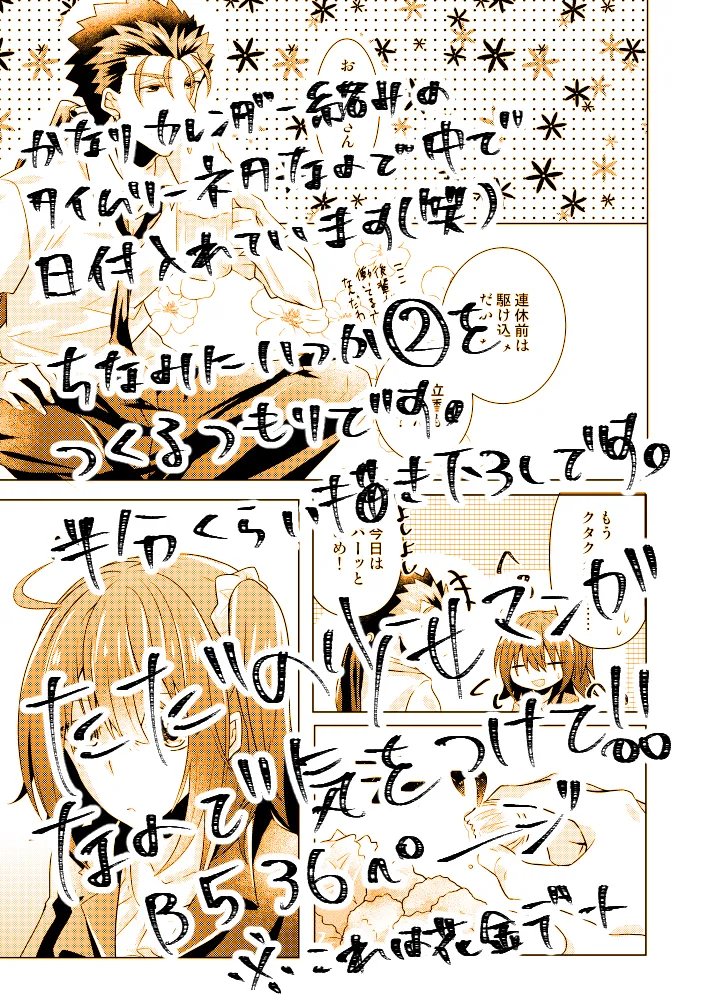 かなりカレンダー絡みの
タイムリーネタなので中で
日付入れています(笑)
ちなみにいつか②を
つくるつもりです。
半分くらい描き下ろしです。
ただの
マンガ
なので気をつけて!!
B5 36ページ
※これは花金デート
連休前は
駆け込
後輩
働いてるん
なんだわ
もう
クタク
……
よしよし
今日は
パーッと
め!